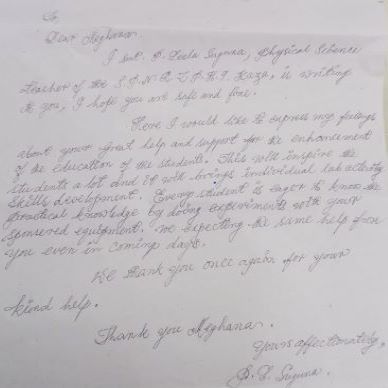 To
Dear Meghana.
I am P. Leela Suguna, Physical Science
teacher of the Z.P.H.S Kaza, is writing
to you, I hope you are safe and fine.
Here I would like to express my feelings
about your great help and support for the enhancement
of the education of the students. This will inspire the
students a lot and it will brings individual lab activity
skills development. Every student is eager to know the
practical knowledge by doing experiments with your
sponsered equipment. We expecting the same help from
you even in coming days.
We thank you once again for your
kind help.
Thank you Meghana.
Yours affectionately,
P. L. Suguna.